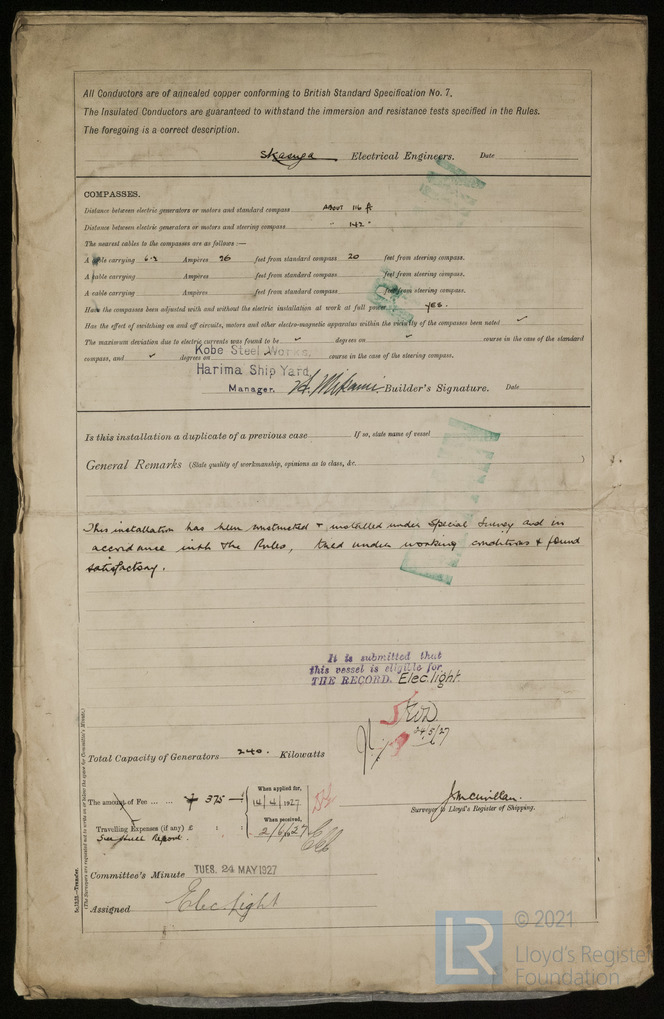 All Conductors are of annealed copper conforming to British Standard Specification No. 7.
The Insulated Conductors are guaranteed to withstand the immersion and resistance tests specified in the Rules.
The foregoing is a correct description.
Electrical Engineers. Date
COMPASSES.
Distance between electric generators or motors and standard compass ABOUT 116 ft
Distance between electric generators or motors and steering compass " 142 "
The nearest cables to the compasses are as follows :—
A cable carrying 6.2 Ampères 26 feet from standard compass 20 feet from steering compass.
A cable carrying Ampères feet from standard compass feet from steering compass.
A cable carrying Ampères feet from standard compass feet from steering compass.
Have the compasses been adjusted with and without the electric installation at work at full power YES.
Has the effect of switching on and off circuits, motors and other electro-magnetic apparatus within the vicinity of the compasses been noted ✓
The maximum deviation due to electric currents was found to be ✓ degrees on ✓ course in the case of the standard
compass, and ✓ degrees on ✓ course in the case of the steering compass.
Kobe Steel Works.
Harima Ship Yard,
Manager. Builder's Signature. Date
Is this installation a duplicate of a previous case If so, state name of vessel
General Remarks (State quality of workmanship, opinions as to class, &c. )
This installation has been constructed & installed under Special Survey and in
accordance with the Rules, tried under working conditions & found
satisfactory.
It is submitted that
this vessel is eligible for
THE RECORD. Elec. light.
24/5/27
Total Capacity of Generators 240. Kilowatts
The amount of Fee ... ... 375 — When applied for, 14/4/1927
Travelling Expenses (if any) £ : : When received, 2/6/1927
See Hull Report.
J. McMillan.
Surveyor to Lloyd's Register of Shipping.
Committee's Minute TUES. 24 MAY 1927
Assigned Elec. Light
5c.1225.—Transfer.
(The Surveyors are requested not to write on or below the space for Committee's Minute.)
LR © 2021
Lloyd's Register
Foundation